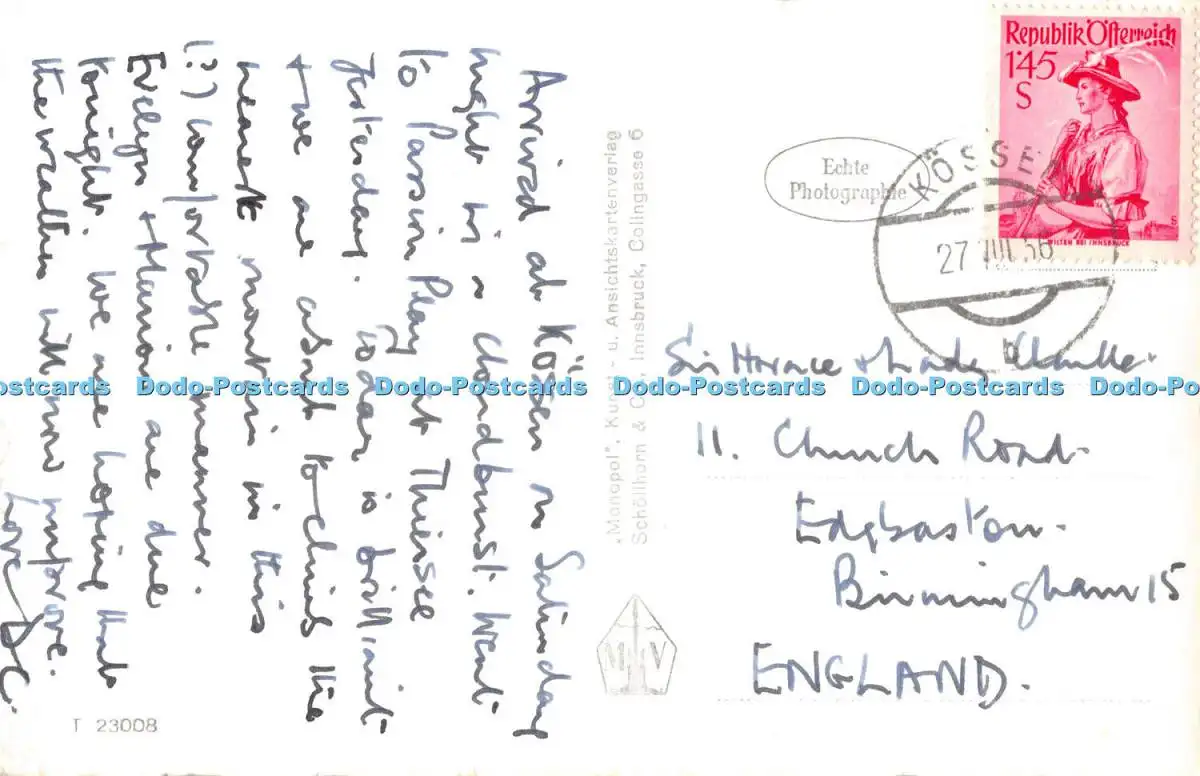 Arrived at Kössen on Saturday
night in a cloudburst. Went
to Passion Play at Thiersee
yesterday. Today is brilliant
+ we are about to climb the
nearest mountain in this
(?) comfortable manner.
Evelyn + Marion are due
tonight. We are hoping that
the weather will now improve.
Love
T 23008
"Monopol", Kunst- u. Ansichtskartenverlag
Schöllhorn & Co., Innsbruck, Colingasse 6
M V
Echte
Photographie
Republik Österreich
1'45
S
WILTEN BEI INNSBRUCK
KÖSSEN
27. VIII. 55
Sir Horace & Lady
11. Church Road.
Edgbaston.
Birmingham 15
ENGLAND.
Dodo-Postcards Dodo-Postcards Dodo-Postcards Dodo-Postcards Dodo-Postcards Dodo-Postcards